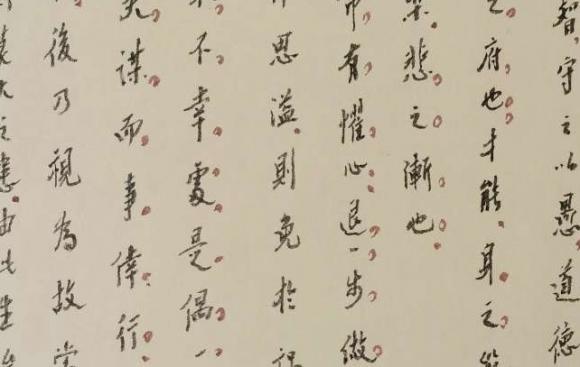 智守之以愚道德
之府也才能身之
樂悲之漸也
有懼心退一步做
思溢則免於
不幸處是偶一
謀而事倖行
後乃視為故常
之患由此生